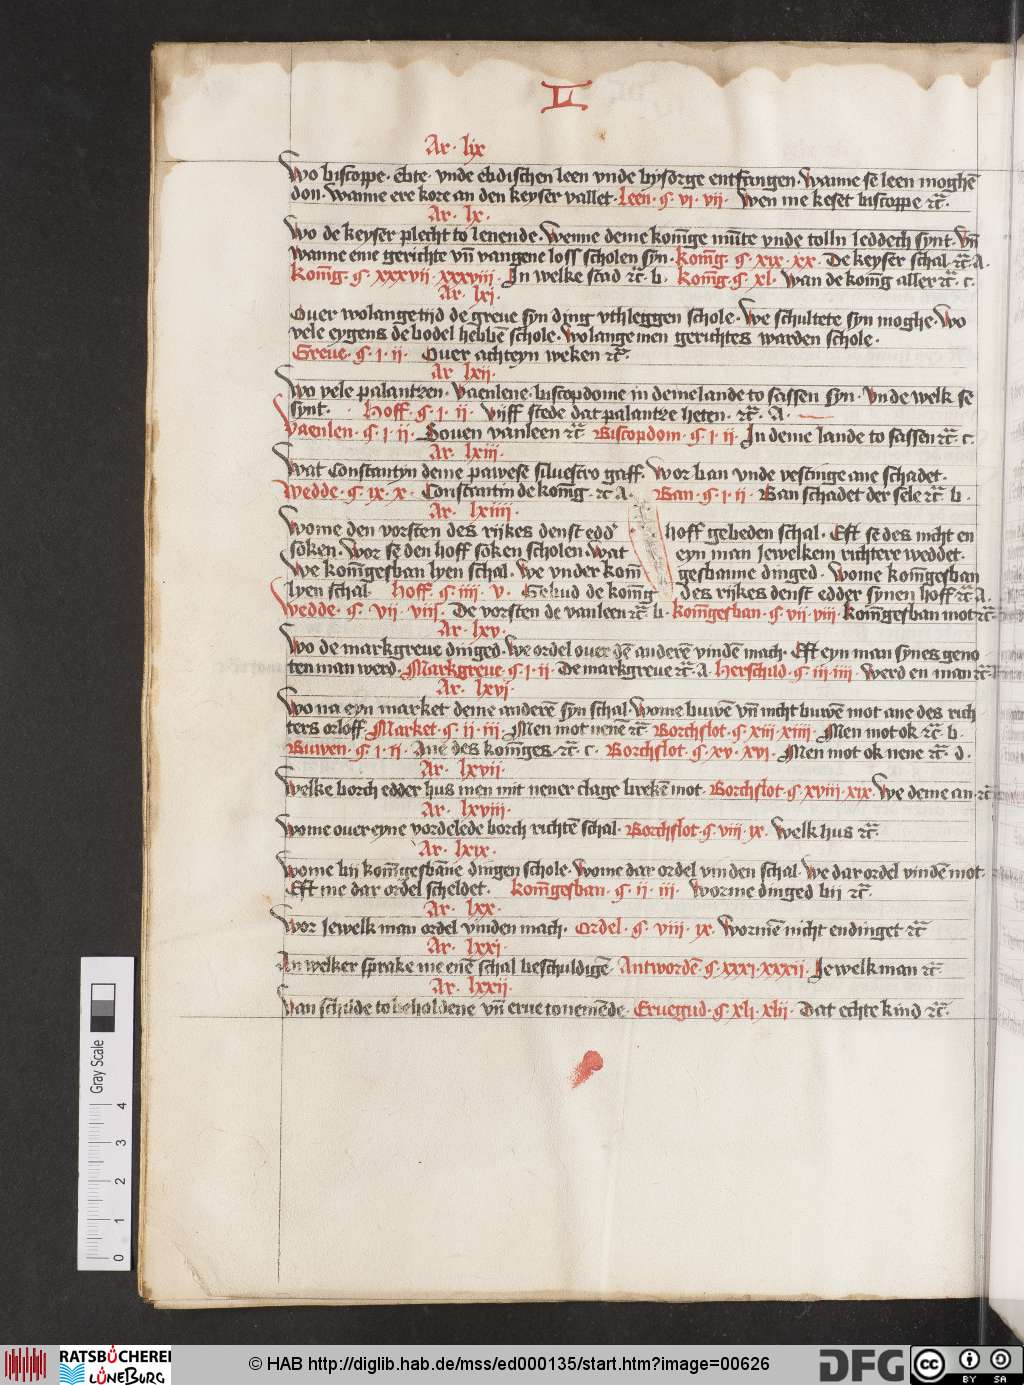 L
Ar · lix
Wo biscoppe · ebte · vnde ebdischen leen vnde bysorge entfangen · wanne se leen moghē
don · wanne ere kore an den keyser vallet · Leen · ꞔ · vi · vii · wen me keset biscoppe ꝛc̄ ·
Ar · lx ·
Wo de keyser plecht to lenende · wenne deme koni̅ge mu̅te vnde tolln leddech synt · vn̄
wanne eme gerichte vn̄ vangene loss scholen syn · koni̅g · ꞔ · xix · xx · De keyser schal ꝛc̄ · A ·
koni̅g · ꞔ · xxxvii · xxxviii · In welke stad ꝛc̄ · b · koni̅g · ꞔ · xl · wan de koni̅g aller ꝛc̄ · c ·
Ar · lxi ·
Ouer wolangetijd de greue syn ding vthleggen schole · we schultete syn moghe · wo
vele eygens de bodel hebbē schole · wolange men gerichtes warden schole ·
Greue · ꞔ · i · ii · Ouer achteyn weken ꝛc̄ ·
Ar · lxii ·
Wo vele palantzen · vaenlene · biscopdome in deme lande to sassen syn · vnde welk se
synt · Hoff · ꞔ · i · ii · vijff stede dat palantze heten · ꝛc̄ · A ·
Vaenlen · ꞔ · i · ii · Souen vanleen ꝛc̄ Biscopdom · ꞔ · i · ii · In deme lande to sassen ꝛc̄ · c ·
Ar · lxiii ·
Wat Constantyn deme pawese siluestro gaff · wor ban vnde vestinge ane schadet ·
Wedde · ꞔ · ix · x · Constantin de koni̅g · ꝛc A · Ban · ꞔ · i · ii · Ban schadet der sele ꝛc̄ · b ·
Ar · lxiiii ·
Wome den vorsten des rijkes denst edd' hoff gebeden schal · Eft se des nicht en
soken · wor se den hoff soken scholen · wat eyn man Jewelkem richtere weddet ·
We koni̅gesban lyen schal · we vnder koni̅ gesbanne dinged · wome koni̅gesban
lyen schal · Hoff · ꞔ · iiii · v · Gebud de koni̅g des rijkes denst edder synen hoff ꝛc̄ A ·
Wedde · ꞔ · vii · viii · De vorsten de vanleen ꝛc̄ · b · koni̅gesban · ꞔ · vii · viii · koni̅gesban mot ꝛc̄
Ar · lxv ·
Wo de markgreue dinged · we ordel ouer den̄ anderē vindē mach · Eft eyn man synes geno
ten man werd · Markgreue · ꞔ · i · ii · De markgreue ꝛc̄ · A · Herschild · ꞔ · iii · iiii · werd en man ꝛc̄
Ar · lxvi ·
Wo na eyn market deme anderē syn schal · wome buwē vn̄ nicht buwē mot ane des rich
ters orloff Market · ꞔ · ii · iii · Men mot nenē ꝛc̄ Borchslot · ꞔ · xiii · xiiii · Men mot ok ꝛc̄ · b ·
Buwen · ꞔ · i · ii · Ane des koni̅ges · ꝛc̄ · c · Borchslot · ꞔ · xv · xvi · Men mot ok nene ꝛc̄ · d ·
Ar · lxvii ·
Welke borch edder hus men mit nener clage brekē mot · Borchslot · ꞔ · xviii · xix · We deme an · ꝛc̄
Ar · lxviii ·
Wome ouer eyne vordelede borch richtē schal · Borchslot · ꞔ · viii · ix · welk hus ꝛc̄ ·
Ar · lxix ·
Wome bij koni̅gesba̅ne dingen schole · wome dar ordel vinden schal · we dar ordel vindē mot ·
Eft me dar ordel scheldet · koni̅gesban · ꞔ · ii · iii · worme dinged bij ꝛc̄ ·
Ar · lxx ·
Wor Jewelk man ordel vinden mach · Ordel · ꞔ · viii · ix · wormē nicht endinget ꝛc̄
Ar · lxxi ·
An welker sprake me enē schal beschuldigē · Antwordē ꞔ · xxxi · xxxii · Jewelk man ꝛc̄ ·
Ar · lxxii ·
Van schu̅de to beholdene vn̄ erue to nemēde · Eruegud · ꞔ · xli · xlii · Dat echte kind ꝛc̄ ·
Gray Scale
0 1 2 3 4
RATSBÜCHEREI
LÜNEBURG
© HAB http://diglib.hab.de/mss/ed000135/start.htm?image=00626
DFG
cc BY SA